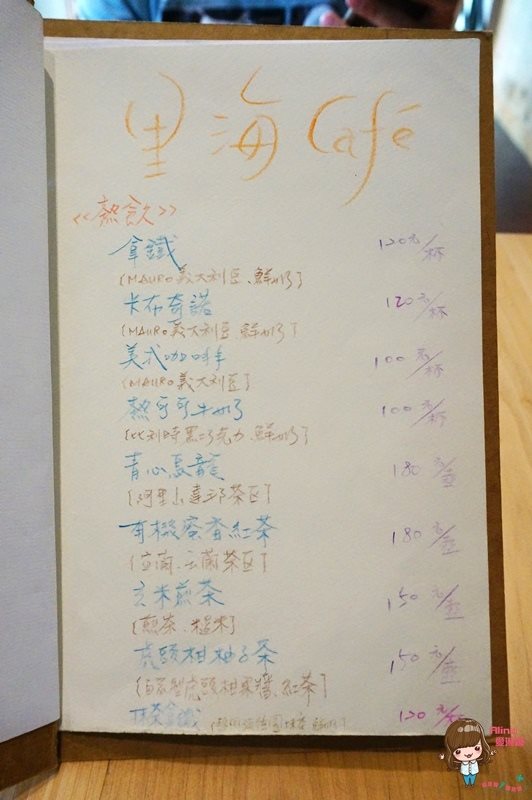 里海 Café
<<熱飲>>
拿鐵 120元/杯
(MAURO義大利豆、鮮奶)
卡布奇諾 120元/杯
(MAURO義大利豆、鮮奶)
美式咖啡 100元/杯
(MAURO義大利豆)
熱可可牛奶 100元/杯
(比利時黑巧克力、鮮奶)
青心烏龍 180元/壺
(阿里山達邦茶区)
有機蜜香紅茶 180元/壺
茶区)
玄米煎茶 150元/壺
(煎茶、糙米)
虎頭柑柚子茶 150元/壺
(自家製虎頭柑果醬、紅茶)
抹茶拿鐵 120元/杯
Aling